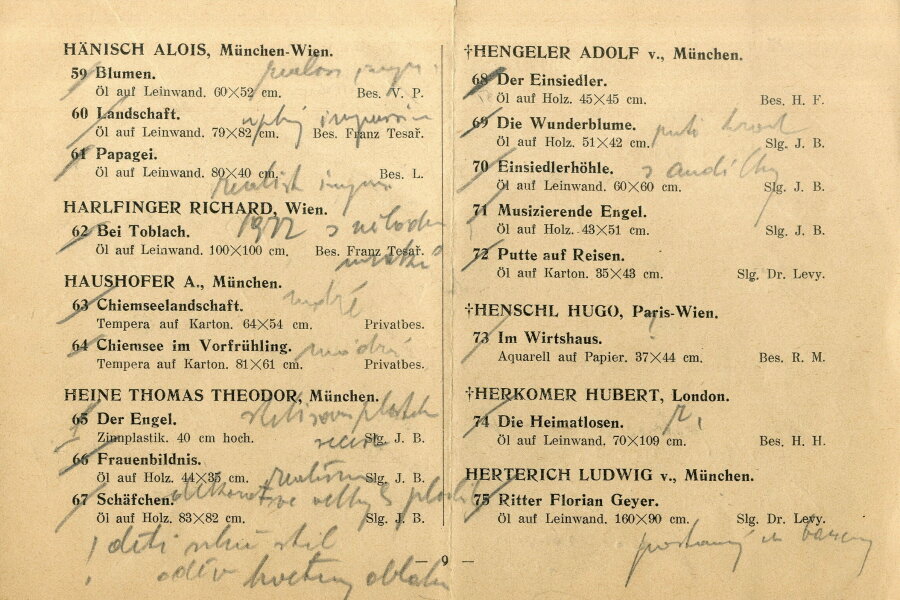 HÄNISCH ALOIS, München-Wien.
59 Blumen.
Öl auf Leinwand. 60×52 cm. Bes. V. P.
60 Landschaft.
Öl auf Leinwand. 79×82 cm. Bes. Franz Tesař.
61 Papagei.
Öl auf Leinwand. 80×40 cm. Bes. L.
HARLFINGER RICHARD, Wien.
1922
62 Bei Toblach.
Öl auf Leinwand. 100×100 cm. Bes. Franz Tesař.
HAUSHOFER A., München.
modré
63 Chiemseelandschaft.
Tempera auf Karton. 64×54 cm. Privatbes.
64 Chiemsee im Vorfrühling.
Tempera auf Karton. 81×61 cm. Privatbes.
HEINE THOMAS THEODOR, München.
65 Der Engel.
Zinnplastik. 40 cm hoch. Slg. J. B.
66 Frauenbildnis.
Öl auf Holz. 44×35 cm. Slg. J. B.
67 Schäfchen.
Öl auf Holz. 83×82 cm. Slg. J. B.
! děti
— 9 —
†HENGELER ADOLF v., München.
68 Der Einsiedler.
Öl auf Holz. 45×45 cm. Bes. H. F.
69 Die Wunderblume.
Öl auf Holz. 51×42 cm. Slg. J. B.
70 Einsiedlerhöhle.
s andílky
Öl auf Leinwand. 60×60 cm. Slg. J. B.
71 Musizierende Engel.
Öl auf Holz. 43×51 cm. Slg. J. B.
72 Putte auf Reisen.
Öl auf Karton. 35×43 cm. Slg. Dr. Levy.
†HENSCHL HUGO, Paris-Wien.
73 Im Wirtshaus.
Aquarell auf Papier. 37×44 cm. Bes. R. M.
†HERKOMER HUBERT, London.
74 Die Heimatlosen.
Öl auf Leinwand. 70×109 cm. Bes. H. H.
HERTERICH LUDWIG v., München.
75 Ritter Florian Geyer.
Öl auf Leinwand. 160×90 cm. Slg. Dr. Levy.